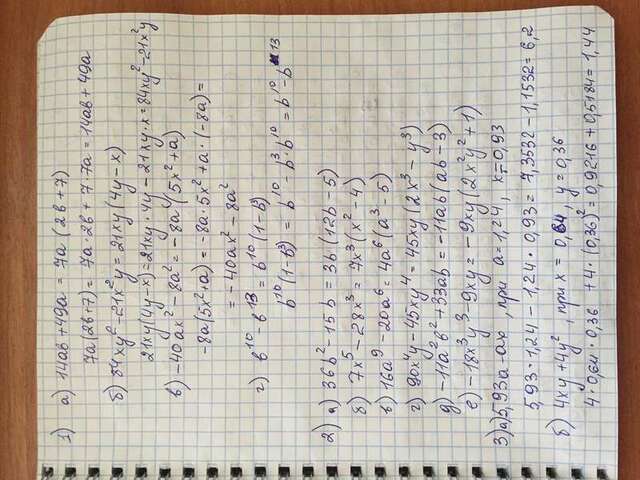 1) а) 14ab + 49a = 7a (2b + 7)
7a(2b+7) = 7a · 2b + 7 · 7a = 14ab + 49a
б) 84xy² - 21x²y = 21xy (4y - x)
21xy(4y-x) = 21xy · 4y - 21xy · x = 84xy² - 21x²y
в) -40ax² - 8a² = -8a (5x² + a)
-8a(5x²+a) = -8a · 5x² + a · (-8a) =
= -40ax² - 8a²
г) b¹⁰ - b¹³ = b¹⁰ (1 - b³)
b¹⁰ (1-b³) = b¹⁰ - b³ · b¹⁰ = b¹⁰ - b¹³
2) а) 36b² - 15b = 3b (12b - 5)
б) 7x⁵ - 28x³ = 7x³ (x² - 4)
в) 16a⁹ - 20a⁶ = 4a⁶ (a³ - 5)
г) 90x⁴y - 45xy⁴ = 45xy (2x³ - y³)
д) -11a²b² + 33ab = -11ab (ab - 3)
е) -18x³y³ - 9xy = -9xy (2x²y² + 1)
3) а) 5,93a - ax, при a = 1,24, x = 0,93
5,93 · 1,24 - 1,24 · 0,93 = 7,3532 - 1,1532 = 6,2
б) 4xy + 4y², при x = 0,64, y = 0,36
4 · 0,64 · 0,36 + 4 · (0,36)² = 0,9216 + 0,5184 = 1,44